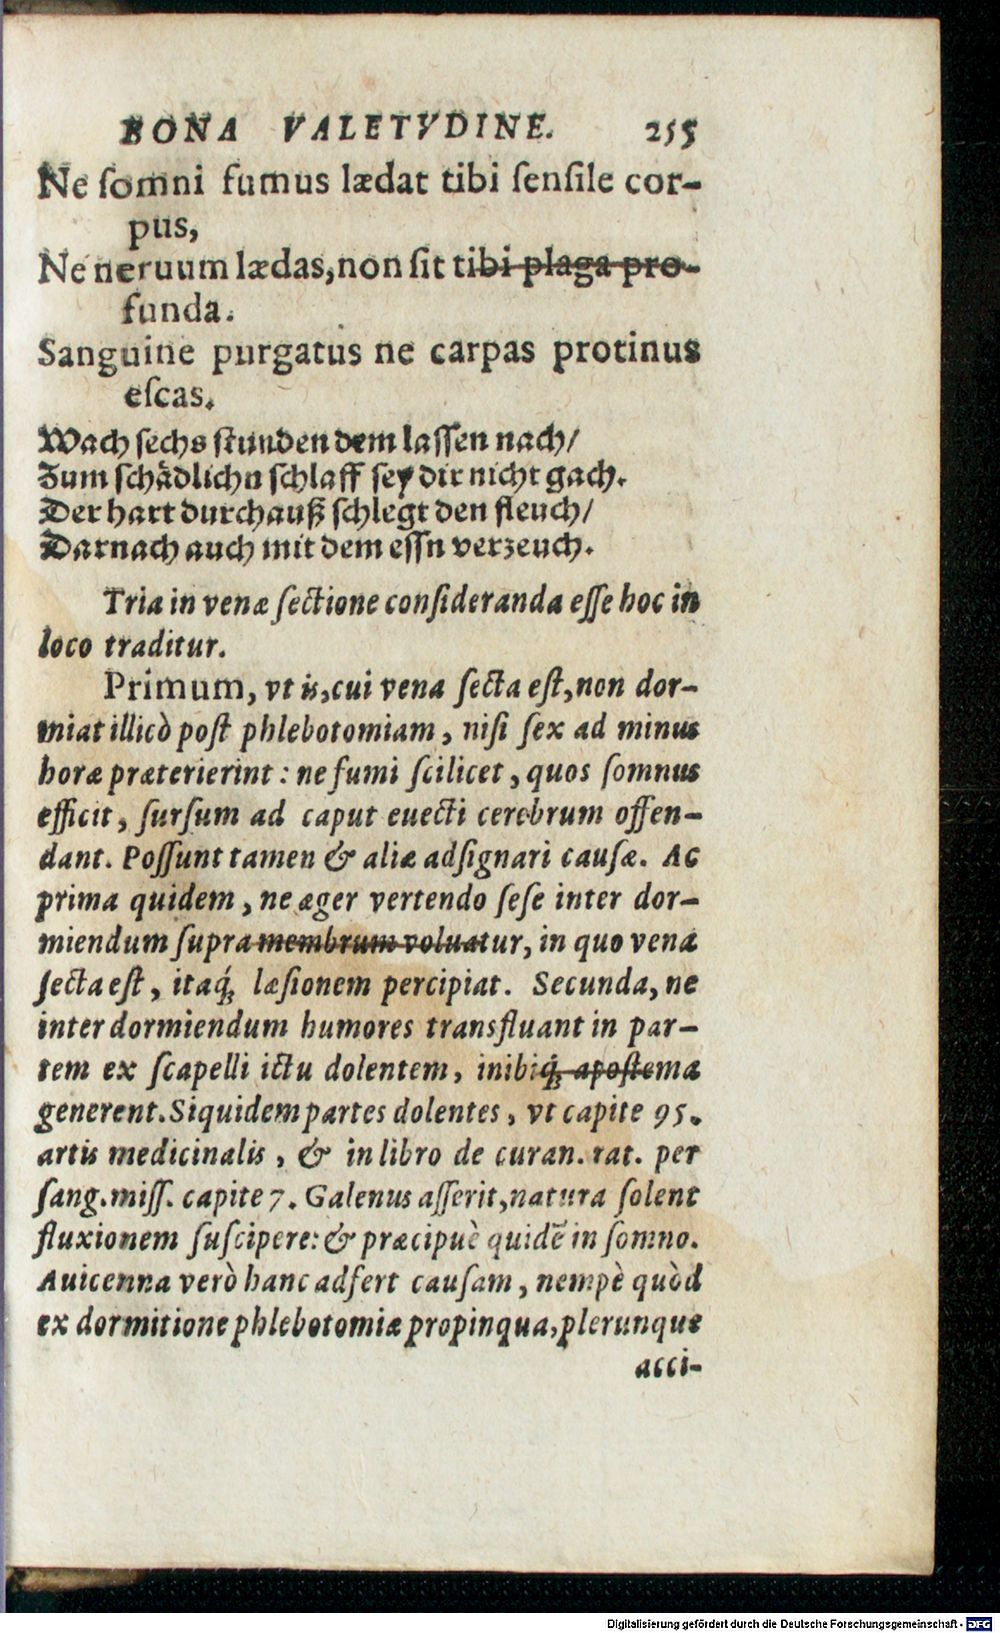 BONA VALETVDINE. 255
Ne ſomni fumus lædat tibi ſenſile cor-
pus,
Ne neruum lædas, non ſit tibi plaga pro-
funda.
Sanguine purgatus ne carpas protinus
eſcas.
Wach ſechs ſtunden dem laſſen nach/
Zum ſchådlichn ſchlaff ſey dir nicht gach.
Der hart durchauß ſchlegt den fleuch/
Darnach auch mit dem eſſn verzeuch.
Tria in venæ ſectione conſideranda eſſe hoc in
loco traditur.
Primum, vt is, cui vena ſecta eſt, non dor-
miat illicò poſt phlebotomiam, niſi ſex ad minus
horæ præterierint: ne fumi ſcilicet, quos ſomnus
efficit, ſurſum ad caput euecti cerebrum offen-
dant. Poſſunt tamen & aliæ adſignari cauſæ. Ac
prima quidem, ne æger vertendo ſeſe inter dor-
miendum ſupra membrum voluatur, in quo vena
ſecta eſt, itaq́; læſionem percipiat. Secunda, ne
inter dormiendum humores transfluant in par-
tem ex ſcapelli ictu dolentem, inibiq́; apoſtema
generent. Siquidem partes dolentes, vt capite 95.
artis medicinalis, & in libro de curan. rat. per
ſang. miſſ. capite 7. Galenus aſſerit, natura ſolent
fluxionem ſuſcipere: & præcipuè quidẽ in ſomno.
Auicenna verò hanc adfert cauſam, nempè quòd
ex dormitione phlebotomiæ propinqua, plerunque
acci-
Digitalisierung gefördert durch die Deutsche Forschungsgemeinschaft - DFG